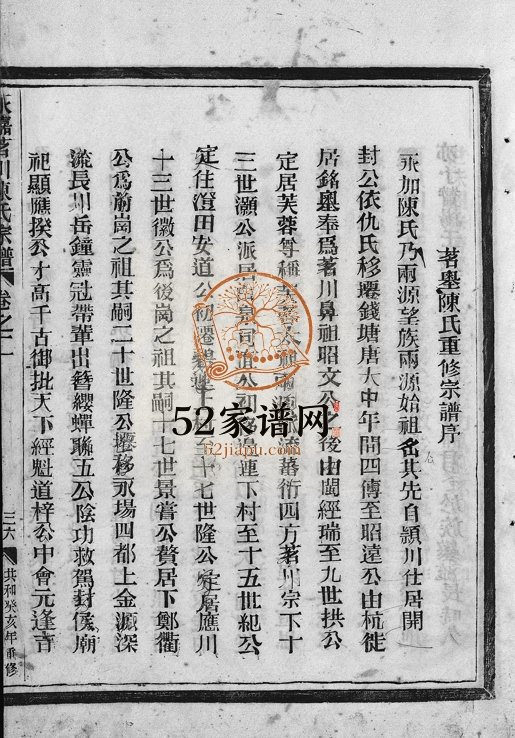 茗壆陳氏重修宗譜序
永加陳氏乃兩源望族兩源始祖名其先自潁川仕居開
封公依仇氏移遷錢塘唐大中年間四傳至昭遠公由杭徙
居銘壆奉爲茗川鼻祖昭文公之後由閩經瑞至九世拱公
定居芙蓉尊稱 兩源 蕃衍四方茗川宗下十
三世灝公派居 邊蓮下村至十五世紀公
定住澄田安道公初遷 至十七世隆公定居應川
十三世徽公爲後崗之祖其嗣十七世景嘗公贅居下鄭衢
公爲前崗之祖其嗣二十世隆公遷移永場四都上金源深
流長川岳鐘靈冠帶輩出簪纓蟬聯五公陰功救駕封侯廟
祀顯應揆公才高千古御批天下經魁道梓公中會元逢吉
永嘉茗川陳氏宗譜 卷之一
三六
共和癸亥年重修
52家谱网
52jiapu.com